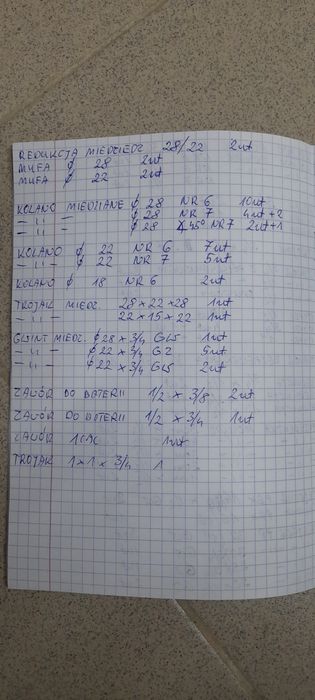 REDUKCJA MIEDZIEDZ 28/22 2szt
MUFA ∅ 28 2szt
MUFA ∅ 22 2szt
KOLANO MIEDZIANE ∅ 28 NR 6 10szt
- 11 - ∅ 28 NR 7 4szt+2
- 11 - ∅ 28 ∡45° NR7 2szt+1
KOLANO ∅ 22 NR 6 7szt
- 11 - ∅ 22 NR 7 5szt
KOLANO ∅ 18 NR 6 2szt
TROJAK MIEDZ. 28×22×28 1szt
- 11 - 22×15×22 1szt
GWINT MIEDZ. ∅28 × 3/4 GW 1szt
- 11 - ∅22 × 3/4 GZ 5szt
- 11 - ∅22 × 3/4 GW 2szt
ZAWÓR DO BATERII 1/2 × 3/8 2szt
ZAWÓR DO BATERII 1/2 × 3/4 1szt
ZAWÓR 1CAL 1szt
TROJAK 1×1× 3/4 1